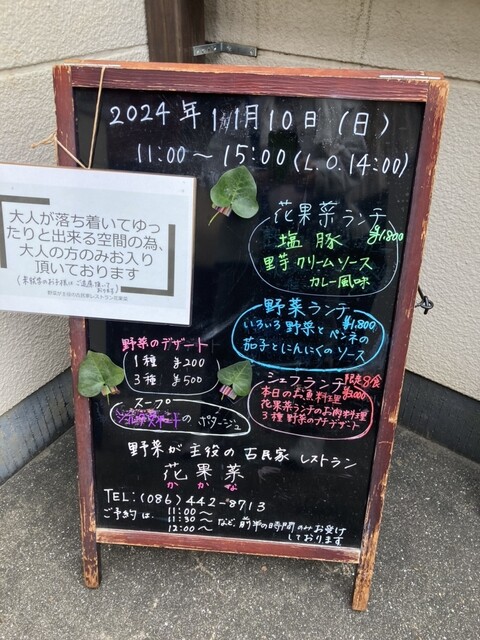 2024年11月10日(日)
11:00～15:00(L.O.14:00)
大人が落ち着いてゆっ
たりと出来る空間の為、
大人の方のみお入り
頂いております
(未就学のお子様はご遠慮頂いて
おります)
野菜が主役の古民家レストラン花果菜
花果菜ランチ
塩豚 ¥1,800
里芋クリームソース
カレー風味
野菜ランチ
¥1,800
いろいろ野菜とペンネの
茄子とにんにくのソース
野菜のデザート
1種 ¥200
3種 ¥500
シェフランチ 限定8食
本日のお魚料理
花果菜ランチのお肉料理
3種野菜のプチデザート
スープ
のポタージュ
野菜が主役の古民家レストラン
花果菜
かかな
TEL:(086)442-8713
ご予約は、11:00～
11:30～
12:00～
など、前半の時間のみお受け
しております